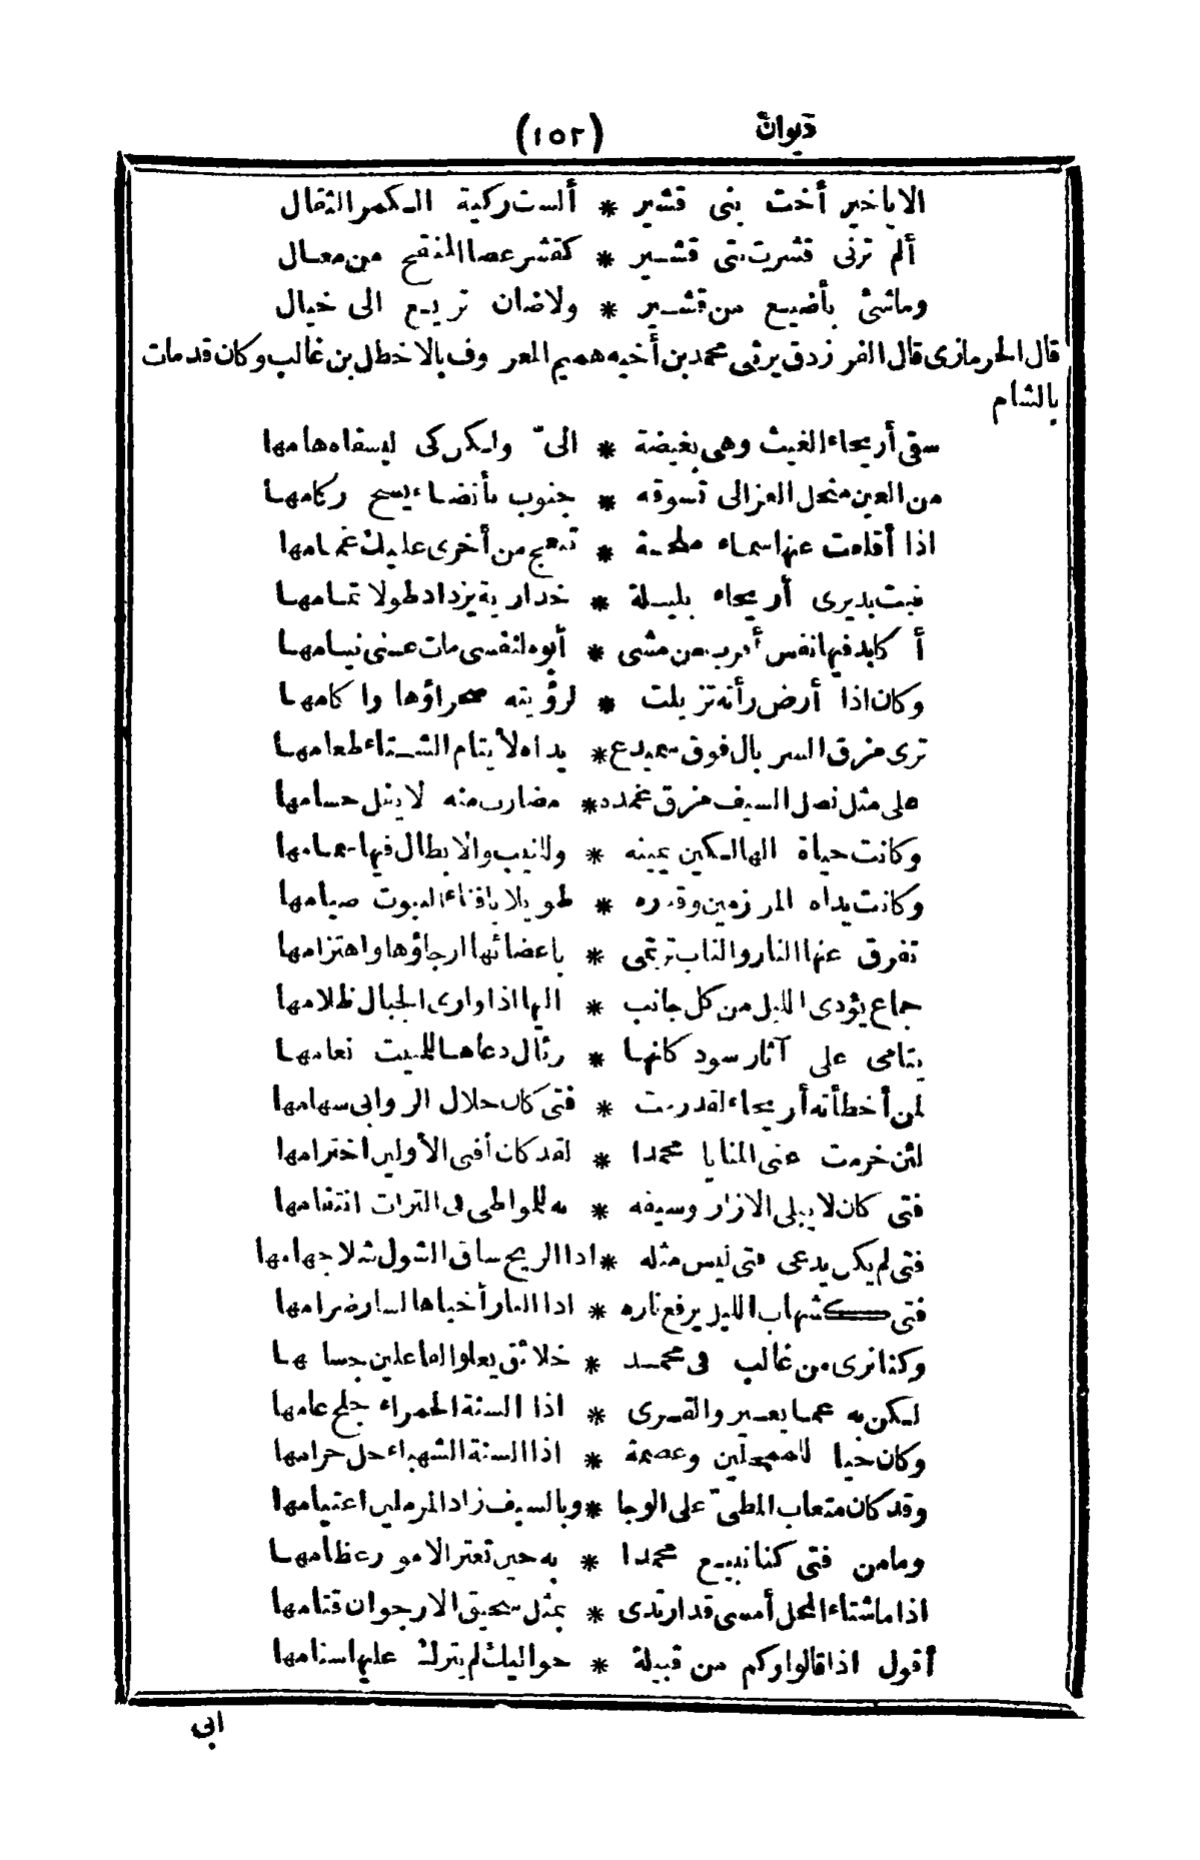 ديوان (١٥٢)
الا ياخير أخت بنى قشير * ألست ركية الكمر الثقال
ألم ترنى قشرت بنى قشير * كقشر عصا المنقح من معال
وما شئ بأضيع من قشير * ولا ضان تريع الى خيال
قال الحرمازى قال الفرزدق يرثى محمد بن أخيه هميم المعروف بالاخطل بن غالب وكان قد مات
بالشام
سقى أريحاء الغيث وهى بغيضة * الىّ ولكن كى ليسقاه هامها
من العين منحل العزالى تسوقه * جنوب بأنضاء يسح ركامها
اذا أقلعت عنها سماء ملحة * تبعج من أخرى عليك غمامها
فبت بديرى أريحاء بليلة * خدارية يزداد طولا تمامها
أكابد فيها نفس أقرب من مشى * أبوه لنفسى مات عنى نيامها
وكان اذا أرض رأته تزيلت * لرؤيته صحراؤها واكامها
ترى مزق السربال فوق سميدع * يداه لأيتام الشتاء طعامها
على مثل نصل السيف مزق غمده * مضارب منه لا يفل حسامها
وكانت حياة الهالكين يمينه * وللنيب والابطال فيها سمامها
وكانت يداه المرزمين وقدره * طويلا بافناء البيوت صيامها
تفرق عنها النار والناب ترتمى * باعضائها ارجاؤها واهتزامها
جماع يؤدى الليل من كل جانب * اليها اذا وارى الجبال ظلامها
يتامى على آثار سود كانها * رئال دعاها للمبيت نعامها
لمن أخطأته أريحاء لقد رمت * فتى كان حلال الروابى سهامها
لئن خرمت عنى المنايا محمدا * لقد كان أفنى الأولين اخترامها
فتى كان لا يبلى الازار وسيفه * به للموالى فى الترات انتقامها
فتى لم يكن يدعى فتى ليس مثله * اذا الريح ساق الشول شلا جهامها
فتى كشهاب الليل يرفع ناره * اذا النار أخباها لسار ضرامها
وكنا نرى من غالب فى محمد * خلائق يعلو الفاعلين جسامها
لكن به عما يعير والقرى * اذا السنة الحمراء جلح عامها
وكان حيا للممحلين وعصمة * اذا السنة الشهباء حل حرامها
وقد كان متعاب المطىّ على الوجا * وبالسيف زاد المرملين اعتيامها
وما من فتى كنا نبيع محمدا * به حين تعتز الامور عظامها
اذا ما شتاء المحل أمسى قد ارتدى * بمثل سحيق الارجوان قتامها
أقول اذا قالوا وكم من قبيلة * حواليك لم يترك عليها سنامها
ابى